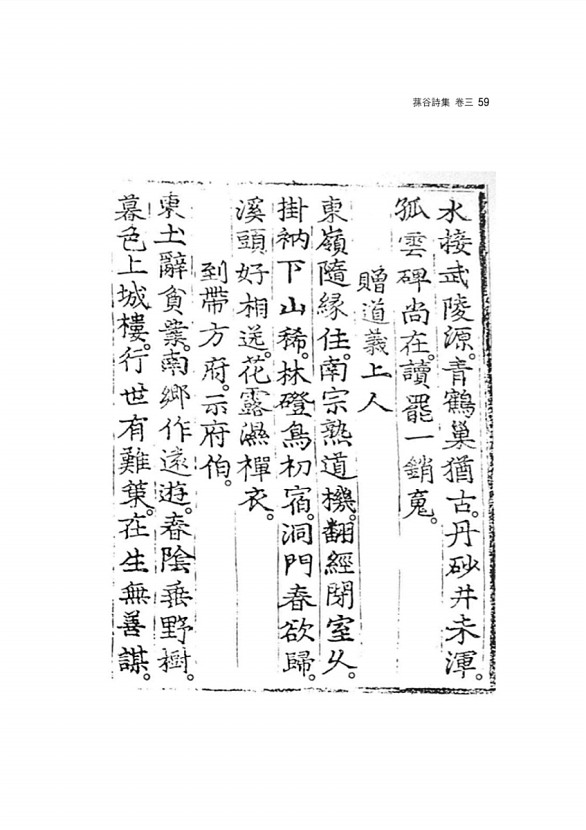 蓀谷詩集 卷三 59
水接武陵源。青鶴巢猶古。丹砂井未渾。
孤雲碑尚在。讀罷一銷䰟。
贈道義上人
東嶺隨緣住。南宗熟道機。翻經閉室久。
掛衲下山稀。林磴鳥初宿。洞門春欲歸。
溪頭好相送。花露濕襌衣。
到帶方府。示府伯。
東土辭貧業。南鄉作遠遊。春陰垂野樹。
暮色上城樓。行世有難策。在生無善謀。